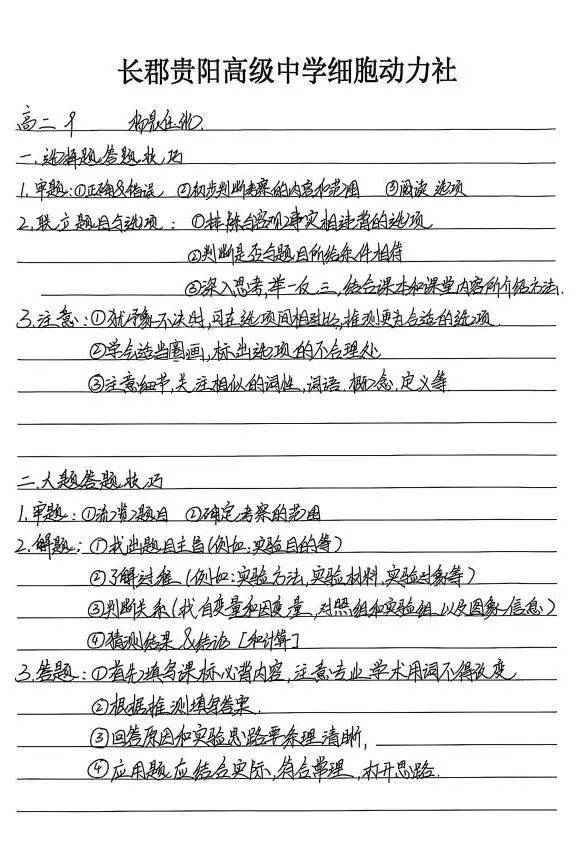 长郡贵阳高级中学细胞动力社
高二9
一.选择题答题技巧
1.审题:①正确&错误 ②初步判断考察的内容和范围 ③阅读选项
2.联立题目与选项:①排除与客观事实相违背的选项
②判断是否与题目所给条件相符
③深入思考,举一反三,结合课本和课堂内容所介绍方法.
3.注意:①犹豫不决时,可在选项间相对比,推测更为合适的选项
②学会适当圈画,标出选项的不合理处
③注意细节,关注相似的词性,词语.概念.定义等.
二.大题答题技巧
1.审题:①浏览题目 ②确定考察的范围
2.解题:①找出题目主旨(例如:实验目的等)
②了解过程(例如:实验方法,实验材料,实验对象等)
③判断关系(找自变量和因变量,对照组和实验组以及图象信息)
④猜测结果&结论[和计算]
3.答题:①首先填写课标必背内容,注意专业学术用词不得改变
②根据推测填写答案.
③回答原因和实验思路要条理清晰,
④应用题应结合实际,符合常理,打开思路.